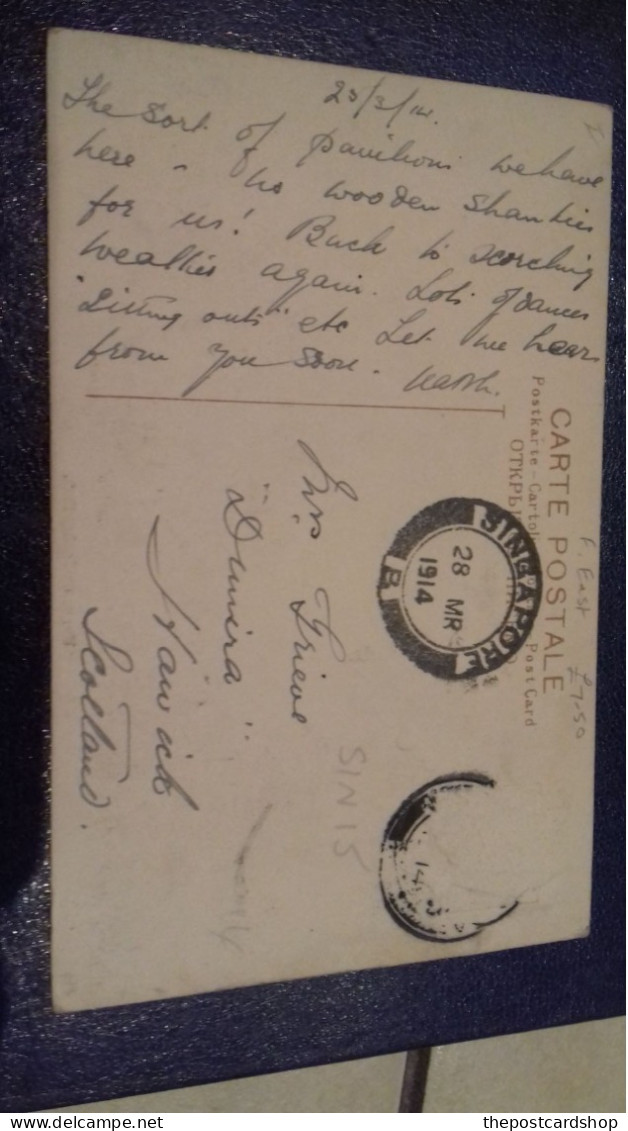 23/3/14.
The sort of pavilions we have
here - no wooden shanties
for us! Back to scorching
weather again. Lots of dances
"sitting outs" etc Let me hear
from you soon.
CARTE POSTALE
Postkarte - Cartol
Post Card
ОТКРЫ
SINGAPORE
28 MR
1914
B
Mrs Grieve
"Dunira"
Hawick
Scotland.
F. East
£7.50
SIN 15
thepostcardshop